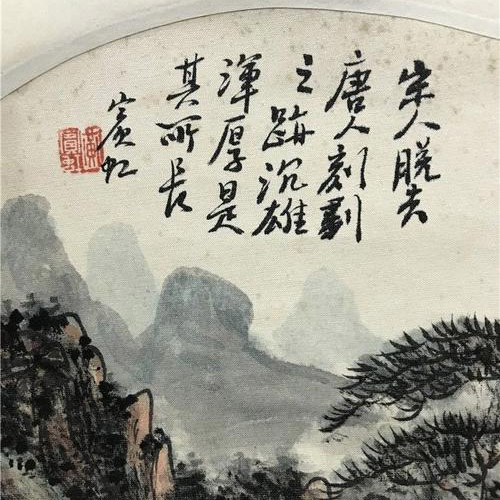 宋人脱去
唐人刻劃
之跡沉雄
渾厚是
其所長
賓虹
黃賓虹